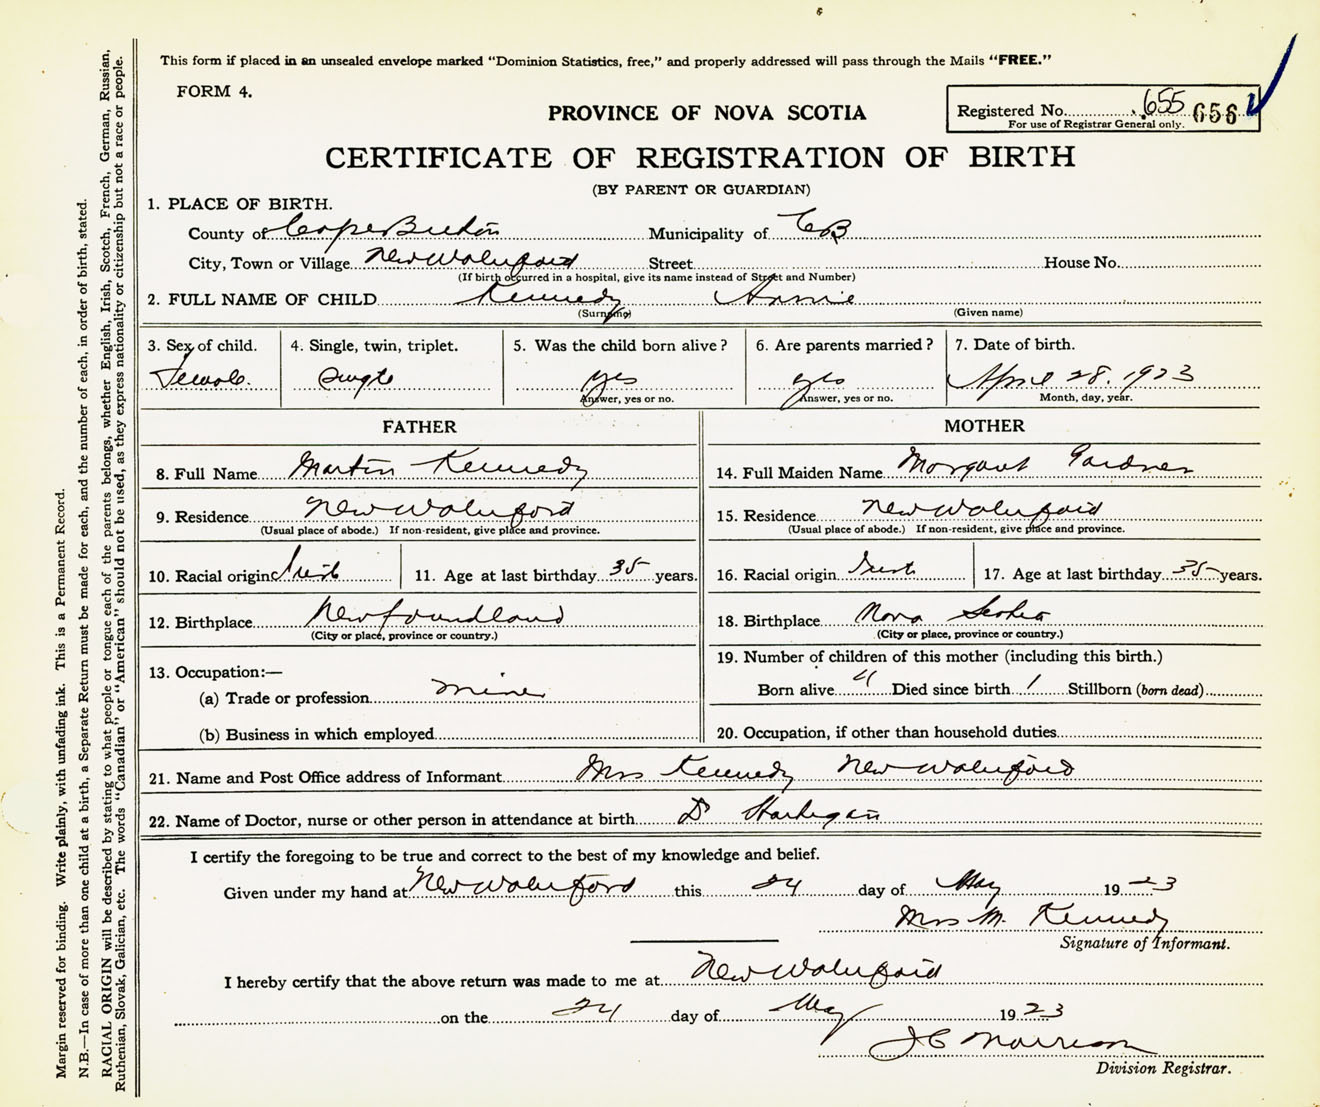 This form if placed in an unsealed envelope marked "Dominion Statistics, free," and properly addressed will pass through the Mails "FREE."
FORM 4.
PROVINCE OF NOVA SCOTIA
Registered No. 655 656
For use of Registrar General only.
CERTIFICATE OF REGISTRATION OF BIRTH
(BY PARENT OR GUARDIAN)
1. PLACE OF BIRTH.
County of Cape Breton Municipality of CB
City, Town or Village New Waterford Street House No.
(If birth occurred in a hospital, give its name instead of Street and Number)
2. FULL NAME OF CHILD Kennedy Annie
(Surname) (Given name)
3. Sex of child. 4. Single, twin, triplet. 5. Was the child born alive? 6. Are parents married? 7. Date of birth.
Female Single yes yes April 28. 1923
Answer, yes or no. Answer, yes or no. Month, day, year.
FATHER MOTHER
8. Full Name Martin Kennedy 14. Full Maiden Name Margaret Gardner
9. Residence New Waterford 15. Residence New Waterford
(Usual place of abode.) If non-resident, give place and province. (Usual place of abode.) If non-resident, give place and province.
10. Racial origin Irish 11. Age at last birthday 35 years. 16. Racial origin Irish 17. Age at last birthday 35 years.
12. Birthplace Newfoundland 18. Birthplace Nova Scotia
(City or place, province or country.) (City or place, province or country.)
13. Occupation:— 19. Number of children of this mother (including this birth.)
(a) Trade or profession miner Born alive Died since birth 1 Stillborn (born dead)
(b) Business in which employed 20. Occupation, if other than household duties
21. Name and Post Office address of Informant Mrs Kennedy New Waterford
22. Name of Doctor, nurse or other person in attendance at birth Dr Hartigan
I certify the foregoing to be true and correct to the best of my knowledge and belief.
Given under my hand at New Waterford this 24 day of May 1923
Mrs M. Kennedy
Signature of Informant.
I hereby certify that the above return was made to me at New Waterford
on the 24 day of May 1923
J C Morrison
Division Registrar.
Margin reserved for binding. Write plainly, with unfading ink. This is a Permanent Record.
N.B.—In case of more than one child at a birth, a Separate Return must be made for each, and the number of each, in order of birth, stated.
RACIAL ORIGIN will be described by stating to what people or tongue each of the parents belongs, whether English, Irish, Scotch, French, German, Russian,
Ruthenian, Slovak, Galician, etc. The words "Canadian" or "American" should not be used, as they express nationality or citizenship but not a race or people.